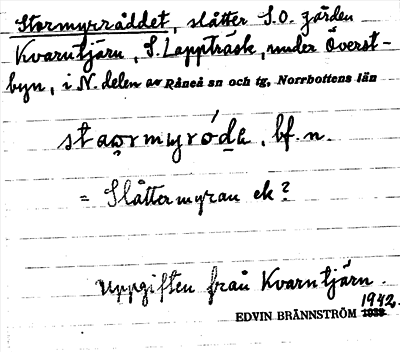 Stormyrråddet, slåtter S.O. gården
Kvarntjärn, S. Lappträsk, under Överst-
byn, i N. delen av Råneå sn och tg, Norrbottens län
staormyróde, bf. n.
= Slåttermyran ek?
Uppgiften från Kvarntjärn.
1942.
EDVIN BRÄNNSTRÖM 1939.